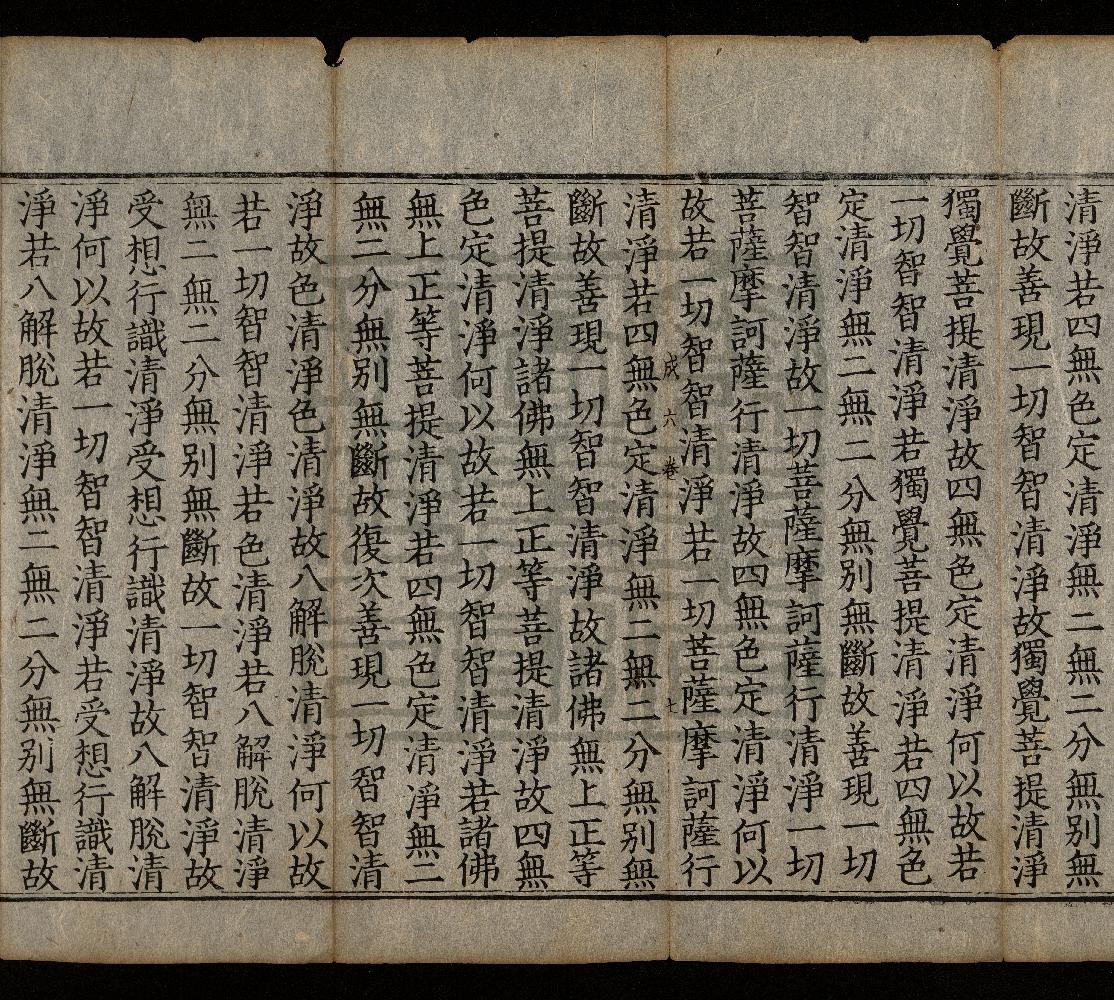 清淨若四無色定清淨無二無二分無别無
斷故善現一切智智清淨故獨覺菩提清淨
獨覺菩提清淨故四無色定清淨何以故若
一切智智清淨若獨覺菩提清淨若四無色
定清淨無二無二分無别無斷故善現一切
智智清淨故一切菩薩摩訶薩行清淨一切
菩薩摩訶薩行清淨故四無色定清淨何以
故若一切智智清淨若一切菩薩摩訶薩行
成六卷 七
清淨若四無色定清淨無二無二分無别無
斷故善現一切智智清淨故諸佛無上正等
菩提清淨諸佛無上正等菩提清淨故四無
色定清淨何以故若一切智智清淨若諸佛
無上正等菩提清淨若四無色定清淨無二
無二分無别無斷故復次善現一切智智清
淨故色清淨色清淨故八解脫清淨何以故
若一切智智清淨若色清淨若八解脫清淨
無二無二分無别無斷故一切智智清淨故
受想行識清淨受想行識清淨故八解脫清
淨何以故若一切智智清淨若受想行識清
淨若八解脫清淨無二無二分無别無斷故